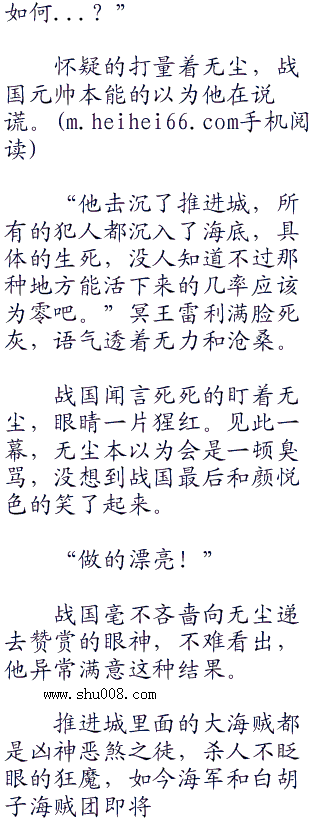 如何...？”
怀疑的打量着无尘，战
国元帅本能的以为他在说
谎。(m.heihei66.com手机阅
读)
“他击沉了推进城，所
有的犯人都沉入了海底，具
体的生死，没人知道不过那
种地方能活下来的几率应该
为零吧。”冥王雷利满脸死
灰，语气透着无力和沧桑。
战国闻言死死的盯着无
尘，眼睛一片猩红。见此一
幕，无尘本以为会是一顿臭
骂，没想到战国最后和颜悦
色的笑了起来。
“做的漂亮！”
战国毫不吝啬向无尘递
去赞赏的眼神，不难看出，
他异常满意这种结果。
www.shu008.com
推进城里面的大海贼都
是凶神恶煞之徒，杀人不眨
眼的狂魔，如今海军和白胡
子海贼团即将